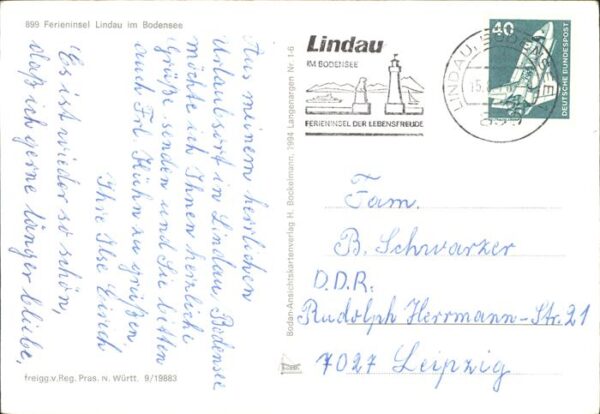 899 Ferieninsel Lindau im Bodensee
Aus meinem herrlichen
Urlaubsort in Lindau, Bodensee
möchte ich Ihnen herzliche
Grüße senden und Sie bitten
auch Frl. Hühn zu grüßen
Ihre Ilse
Es ist wieder so schön,
daß ich gerne länger bliebe.
freigg.v.Reg. Pras. n. Württ. 9/19883
Bodan-Ansichtskartenverlag H. Bockelmann, 2994 Langenargen Nr. 1-6
Lindau
IM BODENSEE
FERIENINSEL DER LEBENSFREUDE
LINDAU, BODENSEE
40
DEUTSCHE BUNDESPOST
Fam.
B. Schwarzer
D.D.R.
Rudolph Herrmann-Str. 21
7027 Leipzig